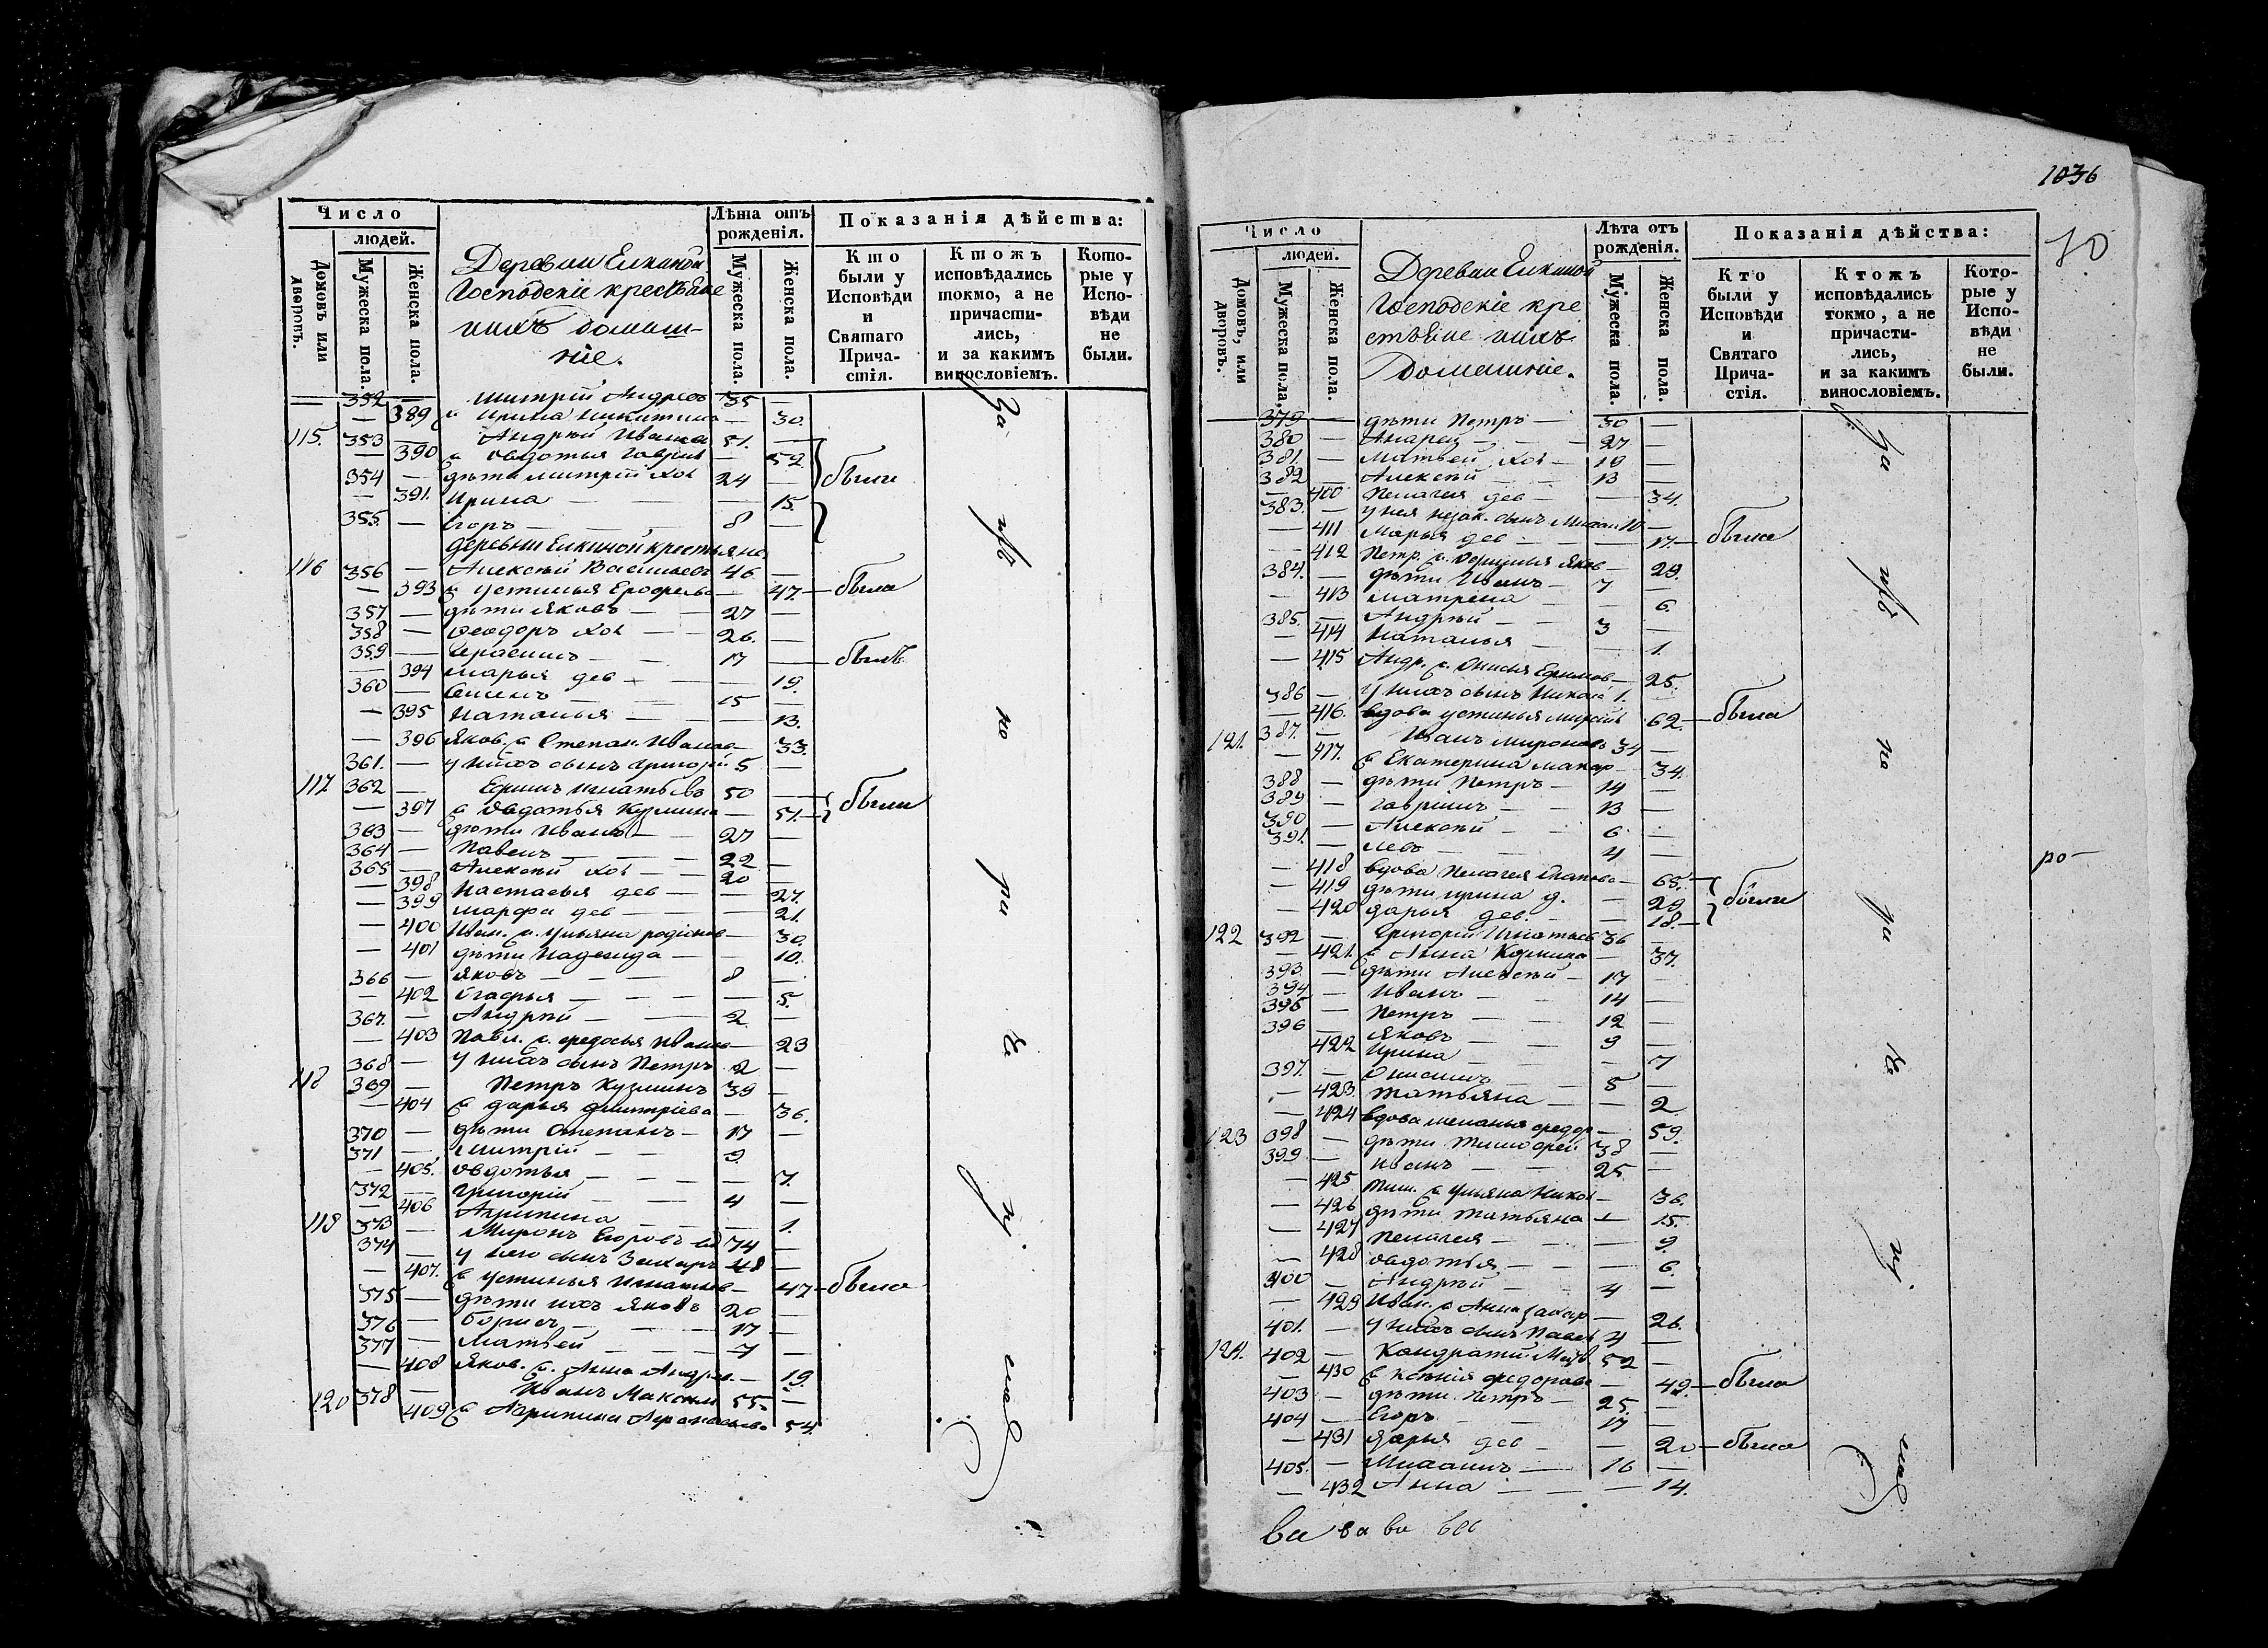 Число
людей.
Домовъ или дворовъ.
Мужеска пола.
Женска пола.
Деревни Елкиной
Господскіе крестьяне
ихъ домаш-
ніе.
Лѣта отъ
рожденія.
Мужеска пола.
Женска пола.
Показанія дѣйства:
Кто
были у
Исповѣди
и
Святаго
Прича-
стія.
Ктожъ
исповѣдались
токмо, а не
причасти-
лись,
и за какимъ
винословіемъ.
Кото-
рые у
Испо-
вѣди
не
были.
352 — Митрій Андреевъ 35 —
— 389 Ирина Никитина — 30.
115. 353 — Андрей Иванов 51. —
— 390 Овдотья Гаврил — 52.
354 — дѣти Митрій хол 24 —
— 391. Ирина — 15.
были
355. — Егоръ 8 —
деревни Елкиной крестьяне
116 356 — Алексѣй Васильевъ 46 —
— 393 Устинья Ерофеева — 47. — была
357 — дѣти Яковъ 27
358 — Ѳеодоръ хол 26. —
359 — Герасимъ 17 — былъ
— 394 Марья дев — 19.
360 — Семенъ 15 —
— 395 Наталья — 13.
— 396 Яков. ж. Степан. Иванов — 33.
361. — у нихъ сынъ Григорій 5 —
117 362 — Ефимъ Игнатьевъ 50 —
— 397 Овдотья Кузмина — 51. были
363 — дѣти Иванъ 27 —
364 — Павелъ 22 —
365 — Алексѣй хол 20 —
— 398 Настасья дев — 27.
— 399 Марфа дев — 21.
— 400 Иван. ж. Ульяна Родіонов — 30.
— 401 дѣти Надежда — 10.
366 — Яковъ 8 —
— 402 Огафья — 5.
367. — Андрей 2
— 403 Павл. ж. Ѳедосья Иванов — 23
368 — у нихъ сынъ Петръ 2 —
118 369 — Петръ Кузминъ 39 —
— 404 Дарья Дмитріева — 36.
370 — дѣти Степанъ 17 —
371 — Дмитрій 9
— 405. Овдотья — 7.
372 — Григорій 4 —
— 406 Агрипина — 1.
119 373 — Миронъ Егоровъ вд 74 —
374 — у него сынъ Захаръ 48 —
— 407. Устинья Игнатьев — 47 — была
375 — дѣти ихъ Яковъ 20 —
376 — Борисъ 17 —
377 — Матвей 7 —
— 408 Яков. ж. Анна Андре — 19.
120 378 — Иванъ Максим 55 —
— 409 Агрипина Афанасьева 54
За
нѣ
по
ри
че
ні.
ем
1036
70
Число
людей.
Домовъ, или дворовъ.
Мужеска пола.
Женска пола.
Деревни Елкиной
Господскіе кре
стьяне ихъ
Домашніе.
Лѣта отъ
рожденія.
Мужеска пола.
Женска пола.
Показанія дѣйства:
Кто
были у
Исповѣди
и
Святаго
Прича-
стія.
Ктожъ
исповѣдались
токмо, а не
причасти-
лись,
и за какимъ
винословіемъ.
Кото-
рые у
Испо-
вѣди
не
были.
379 — дѣти Петръ 30 —
380 — Андрей 27 —
381. — Матвей хол 19 —
382 — Алексѣй 13 —
— 400 Пелагея дев — 34.
383. — у нея незак. сынъ Михаил 10 —
— 411 Марья дев — 17. — была
— 412 Петр. ж. Офимья Яков — 29.
384. — дѣти Иванъ 7 —
— 413 Матрена — 6.
385. — Андрей 3 —
— 414 Наталья — 1.
— 415 Андр. ж. Онисья Ефимов — 25.
386 — у нихъ сынъ Никола 1. —
— 416. вдова Устинья 62. — была
121. 387. — Иванъ Мироновъ 34 —
— 417. Екатерина Макар — 34.
388 — дѣти Петръ 14 —
389 — Гаврилъ 13 —
390 — Алексѣй 6 —
391. — Левъ 4 —
— 418 вдова Пелагея — 65.
— 419 дѣти Ирина д. — 29
— 420 Дарья дев. — 18. были
122 392 — Григорій Игнатьев 36 —
— 421. Анна Кузмина — 37.
393 — дѣти Алексѣй 17 —
394 — Иванъ 14 —
395 — Петръ 12 —
396 — Яковъ 9 —
— 422 Ирина — 7
397. — Онисимъ 5 —
— 423. Татьяна — 2
— 424 вдова Меланья Ѳедор — 59.
123 398 — дѣти Тимофей 38 —
399 — Иванъ 25 —
— 425 Тим. ж. Ульяна Никол — 36.
— 426 дѣти Татьяна — 15.
— 427 Пелагея — 9
— 428 Овдотья — 6.
400 — Андрей 4 —
— 429 Иван. ж. Анна Захар — 26.
401. — у нихъ сынъ Павел 4 —
124. 402 — Кондратій 52 —
— 430 Ксенія Ѳедорова — 49. — была
403 — дѣти Петръ 25. —
404 — Егоръ 17
— 431 Дарья дев — 20 — была
405. — Михаилъ 16 —
— 432 Анна — 14.
За
нѣ
по
ри
че
ні.
ем
ро
ва ва ва